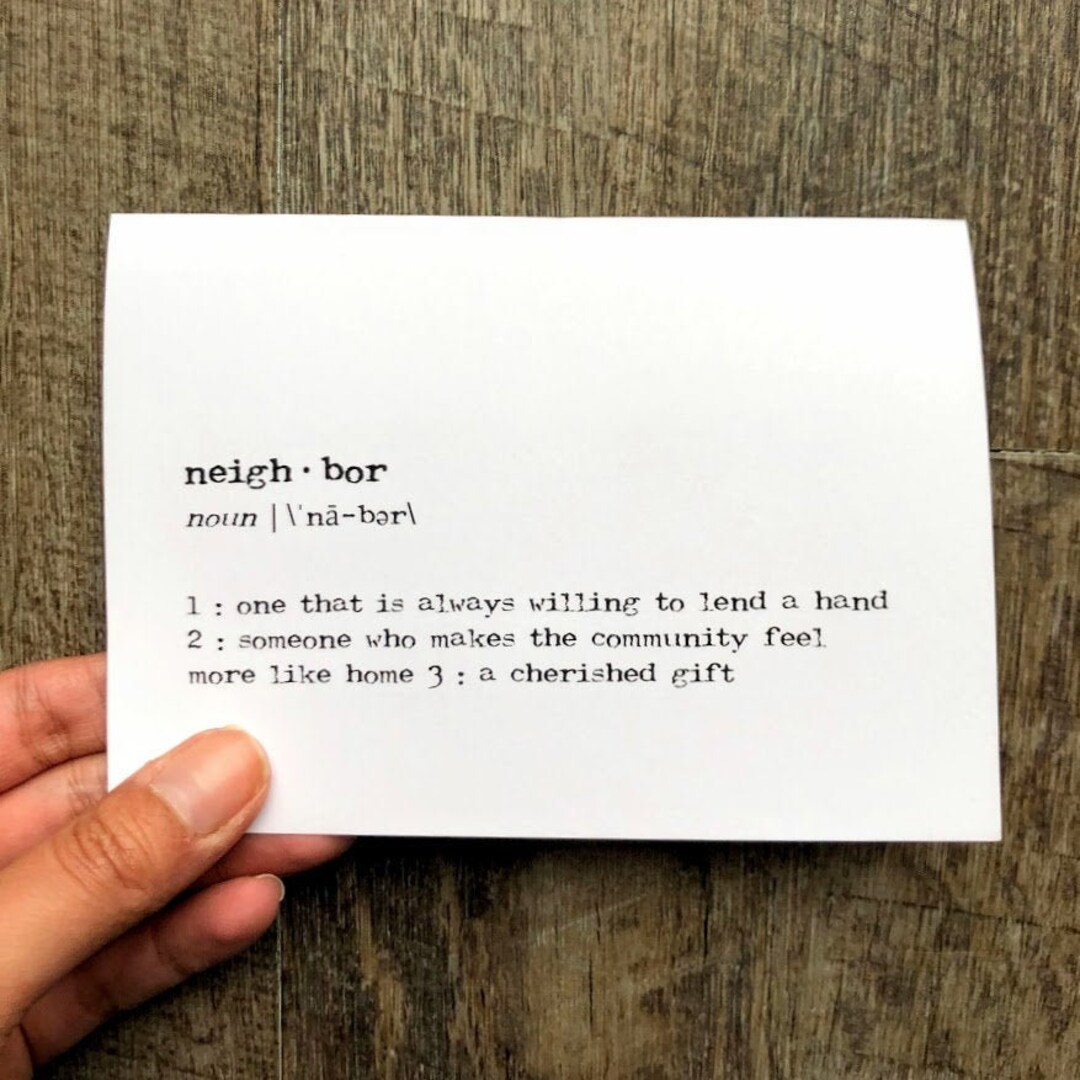 neigh·bor
noun | \ˈnā-bər\
1 : one that is always willing to lend a hand
2 : someone who makes the community feel
more like home 3 : a cherished gift